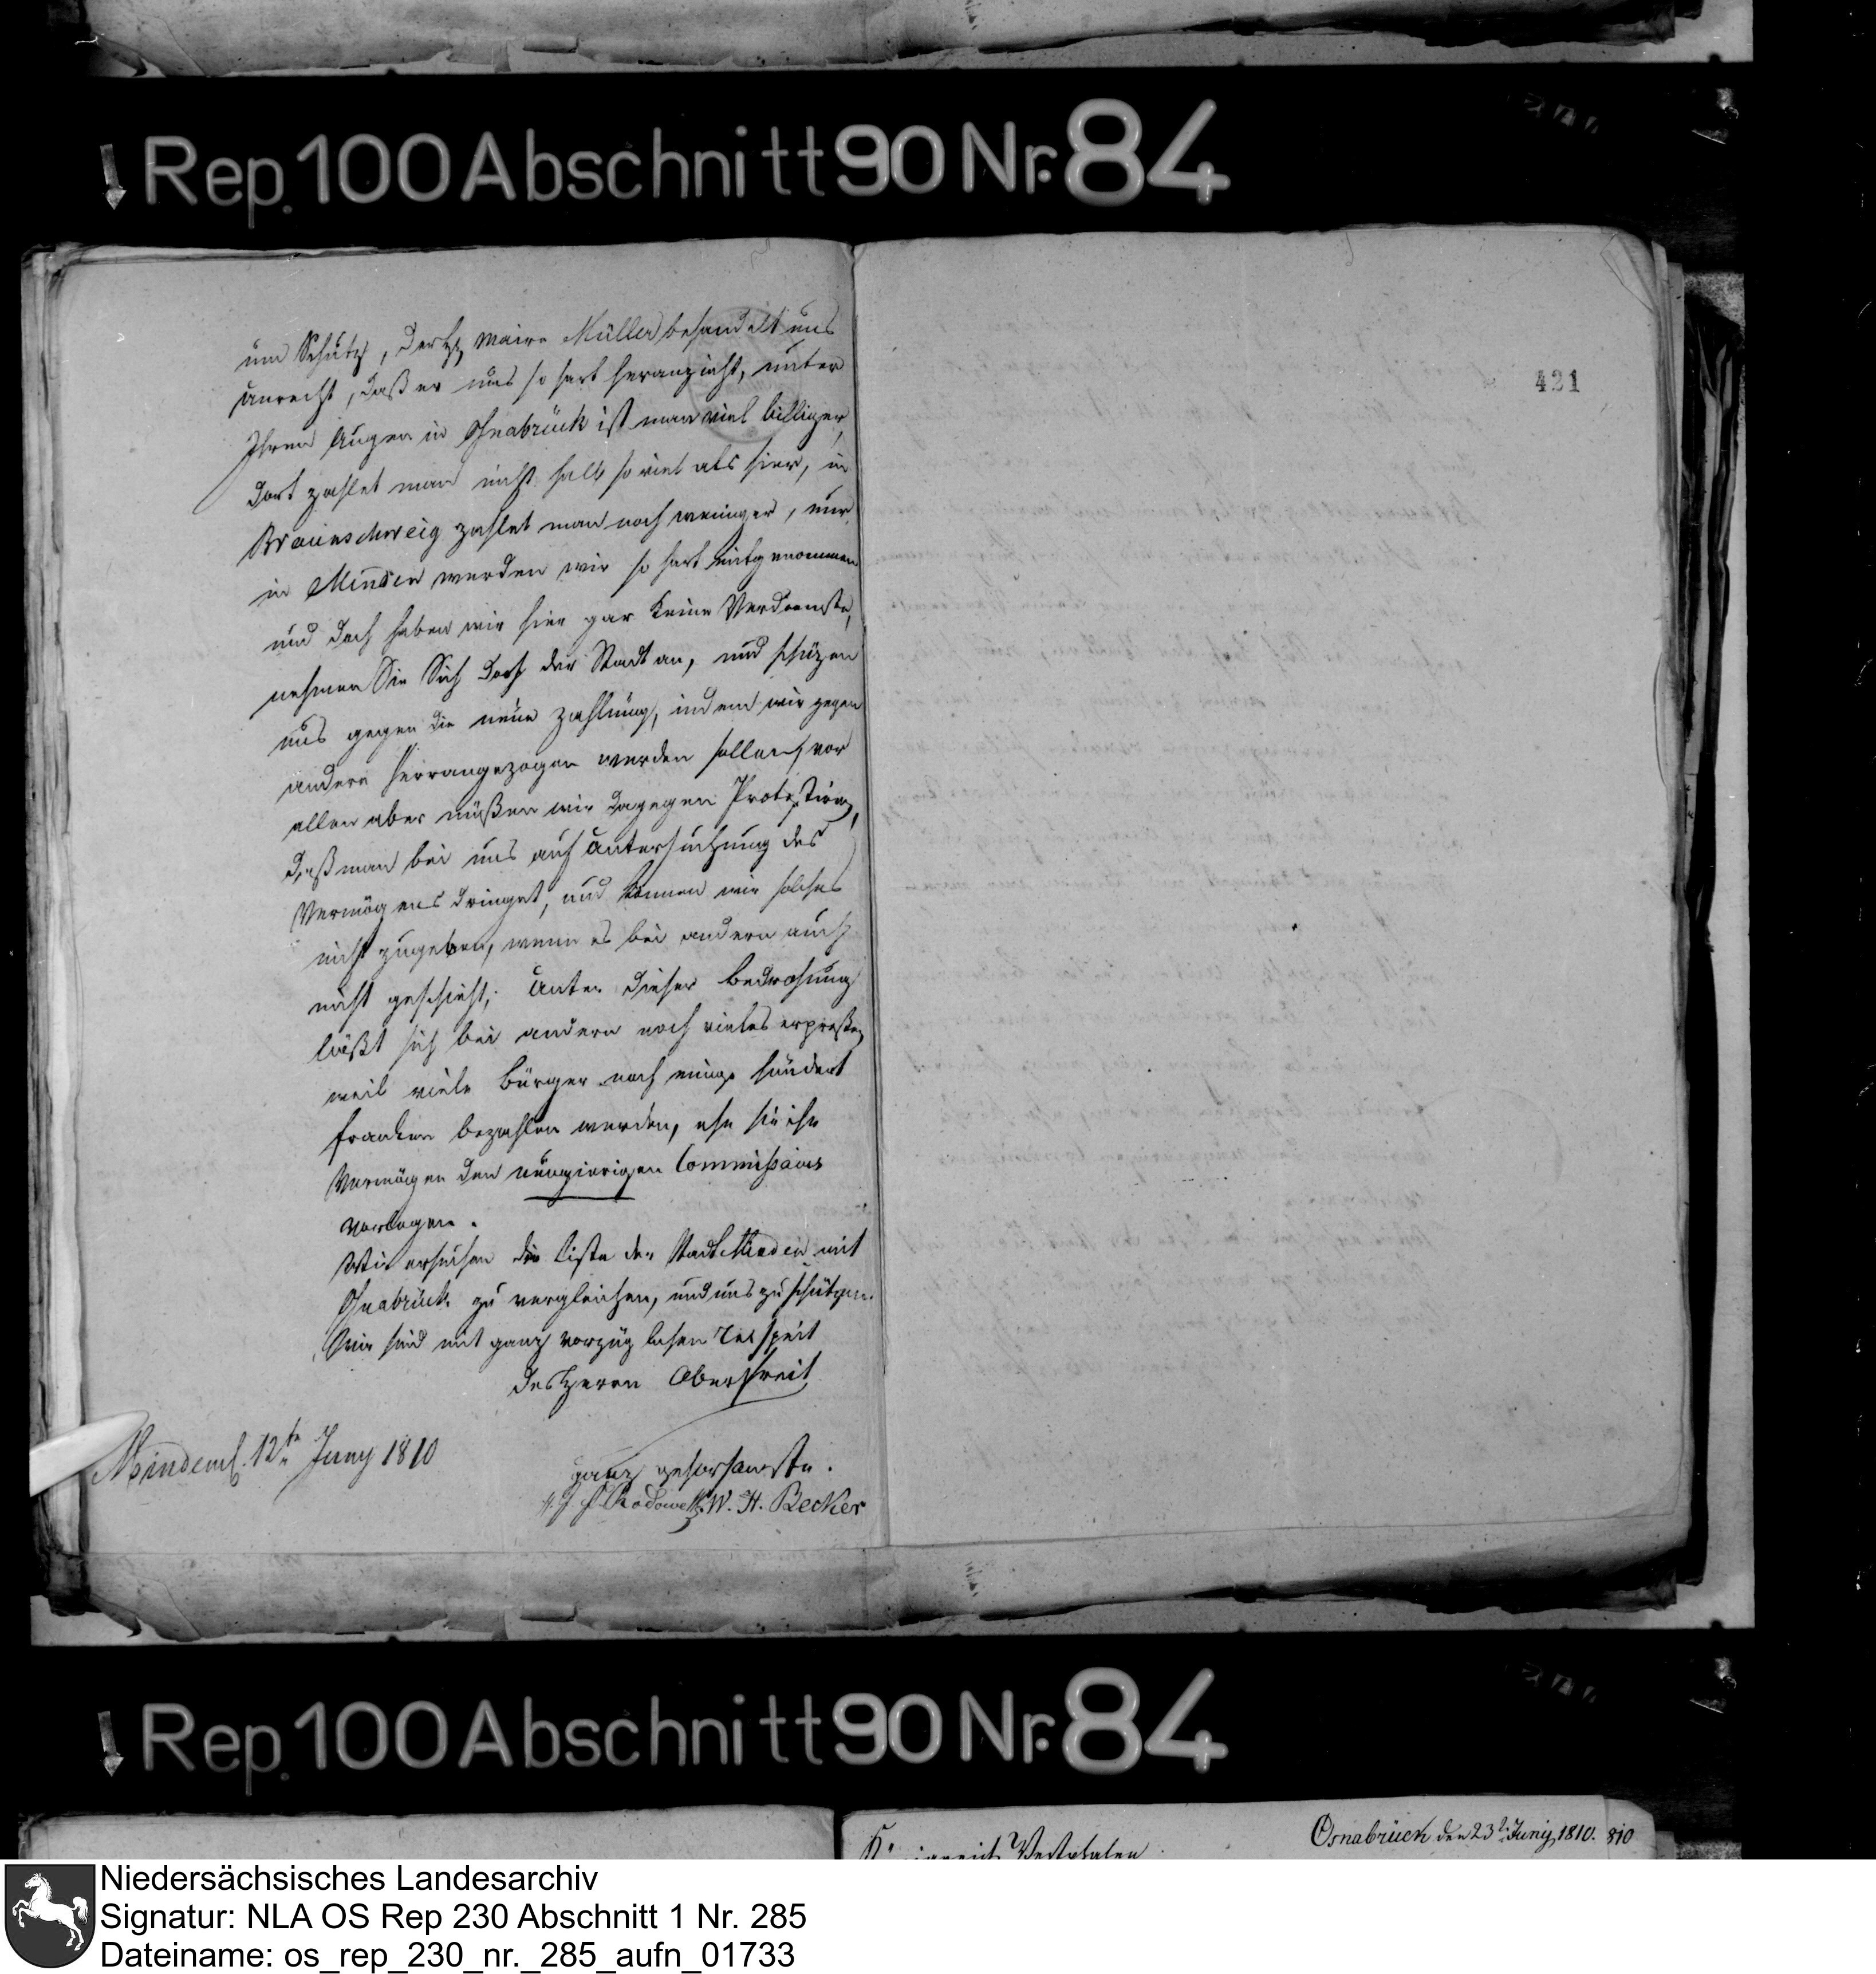 Rep. 100 Abschnitt 90 Nr. 84
421
um Schutz, der H Maire Müller behandelt uns
unrecht, daß er uns so hart heranzieht, unter
Ihren Augen in Osnabrück ist man viel billiger,
dort zahlet man nicht halb so viel als hier, in
Braunschweig zahlet man noch weniger, nur
in Minden werden wir so hart mitgenommen
und doch haben wir hier gar keine Verdienste,
nehmen Sie Sich doch der Stadt an, und schüzen
uns gegen die neue Zahlung, indem wir gegen
andere herrangezogen werden sollen, vor
allen aber müßen wir dagegen Protestiren,
daß man bei uns auf Untersuchung des
Vermögens dringet, und können wir solches
nicht zugeben, wenn es bei andern auch
nicht geschieht; Unter dieser Bedrohung
läßt sich bei andern noch vieles erpreßen
weil viele Bürger noch einige hundert
franken bezahlen werden, ehe sie ihr
Vermögen den neugierigen Commissairs
vorlegen.
Wir ersuchen die Liste der Stadt Minden mit
Osnabrück zu vergleichen, und uns zu schützen.
Wir sind mit ganz vorzüglichen Respect
des Herrn
Minden d. 12tn Juny 1810
ganz gehorsamste.
W. H. Becker
Rep. 100 Abschnitt 90 Nr. 84
Königreich Westphalen
Osnabrück den 23t Juny 1810. 810
Niedersächsisches Landesarchiv
Signatur: NLA OS Rep 230 Abschnitt 1 Nr. 285
Dateiname: os_rep_230_nr._285_aufn_01733